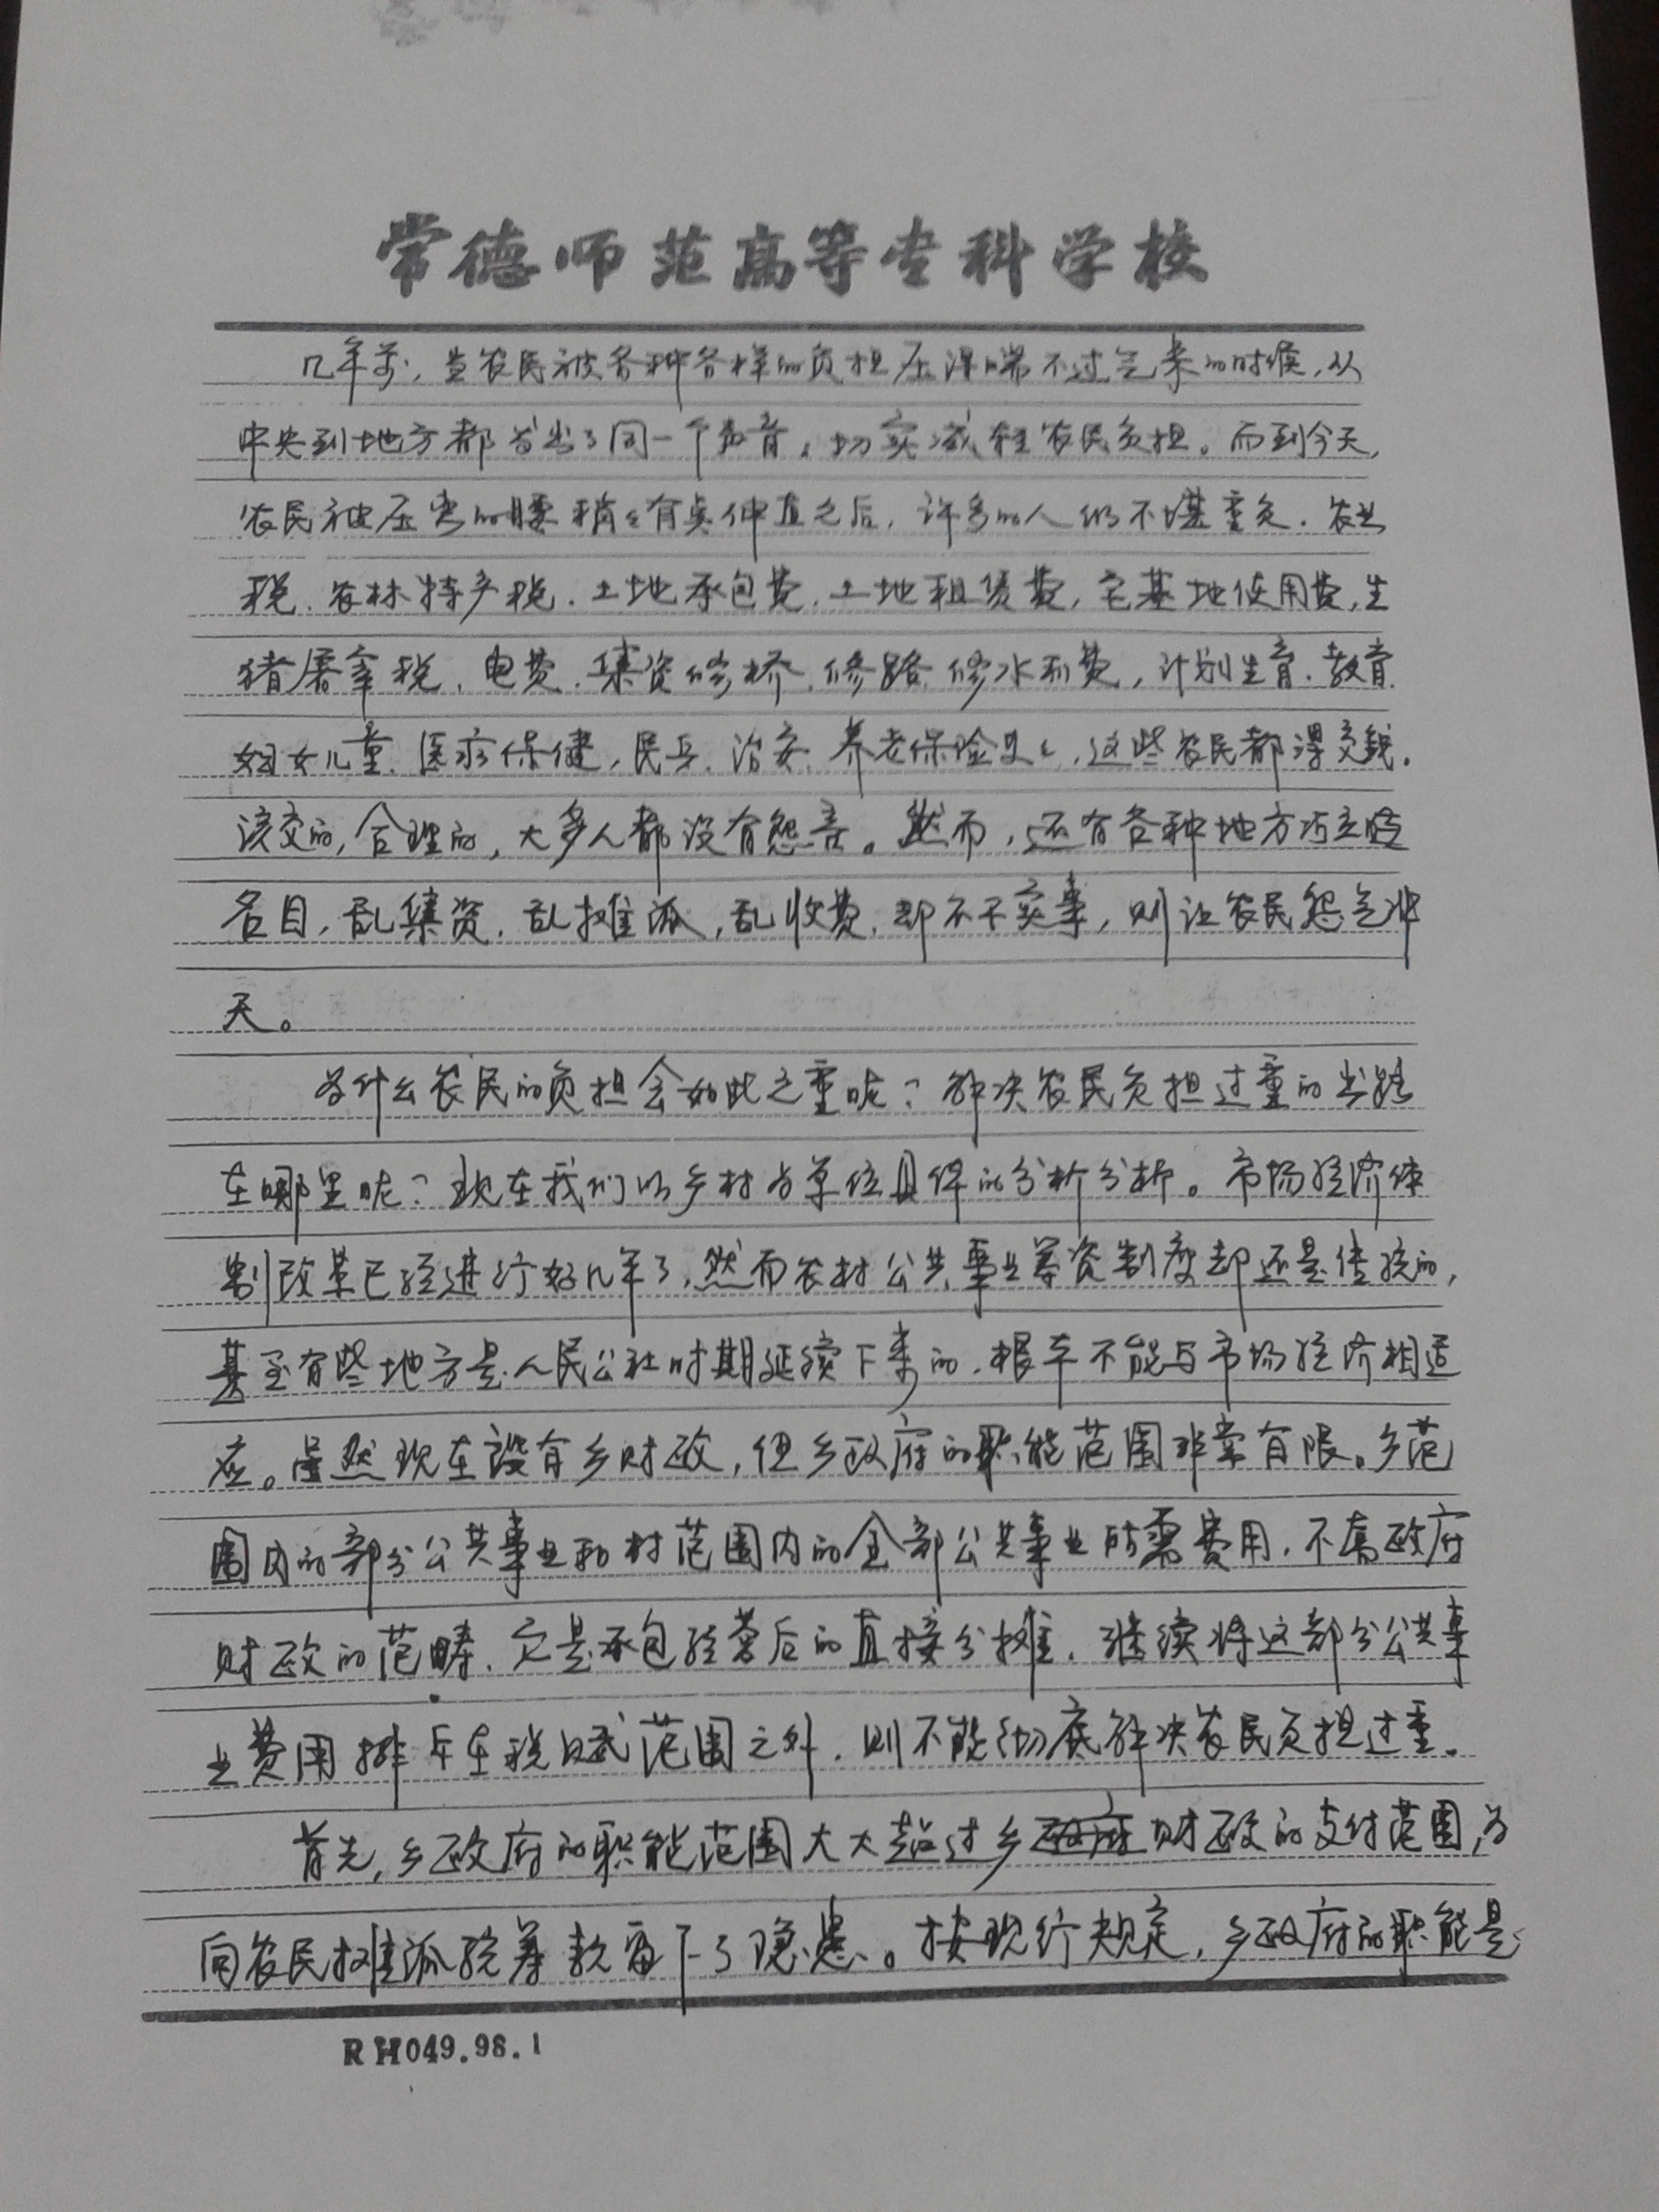 常德师范高等专科学校
几年前，当农民被各种各样的负担压得喘不过气来的时候，从
中央到地方都发出了同一个声音，切实减轻农民负担。而到今天，
农民被压弯的腰稍稍有点伸直之后，许多的人仍不堪重负。农业
税、农林特产税、土地承包费、土地租赁费，宅基地使用费，生
猪屠宰税、电费、集资修桥、修路、修水利费，计划生育、教育、
妇女儿童、医疗保健，民兵、治安、养老保险费，这些农民都得交钱。
该交的，合理的，大多人都没有怨言。然而，还有各种地方巧立
名目，乱集资，乱摊派，乱收费，却不干实事，则让农民怨气冲
天。
为什么农民的负担会如此之重呢？解决农民负担过重的出路
在哪里呢？现在我们以乡村为单位具体的分析分析。市场经济体
制改革已经进行好几年了，然而农村公共事业筹资制度却还是传统的，
甚至有些地方是人民公社时期延续下来的，根本不能与市场经济相适
应。虽然现在设有乡财政，但乡政府的职能范围非常有限。乡范
围内的部分公共事业和村范围内的全部公共事业所需费用，不属政府
财政的范畴，它是承包经营后的直接分摊，继续将这部分公共事
业费用排斥在税赋范围之外，则不能彻底解决农民负担过重。
首先，乡政府的职能范围大大超过乡财政的支付范围，为
向农民摊派统筹款留下了隐患。按现行规定，乡政府的职能是：
RH049.98.1